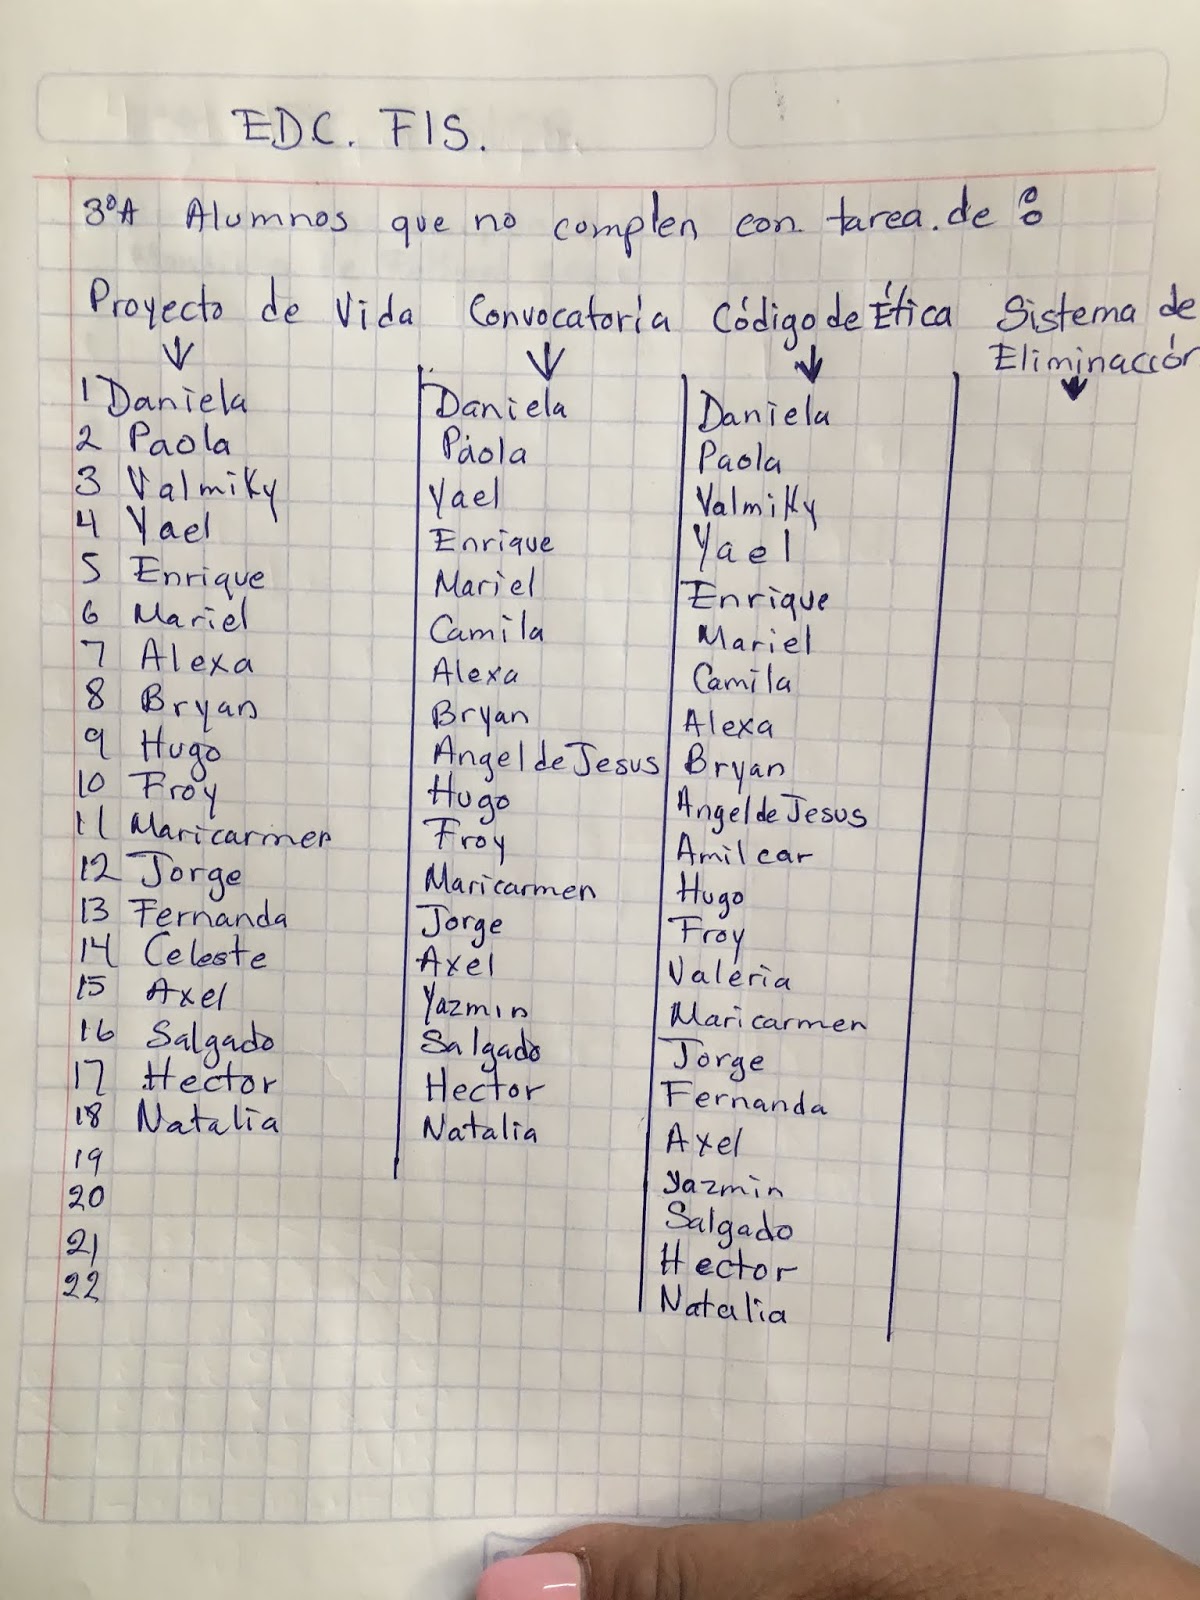 EDC. FIS.
3ºA Alumnos que no complen con tarea. de :
Proyecto de Vida Convocatoria Código de Ética Sistema de
Eliminacción
1 Daniela Daniela Daniela
2 Paola Paola Paola
3 Valmiky Yael Valmiky
4 Yael Enrique Yael
5 Enrique Mariel Enrique
6 Mariel Camila Mariel
7 Alexa Alexa Camila
8 Bryan Bryan Alexa
9 Hugo Angel de Jesus Bryan
10 Froy Hugo Angel de Jesus
11 Maricarmen Froy Amilcar
12 Jorge Maricarmen Hugo
13 Fernanda Jorge Froy
14 Celeste Axel Valeria
15 Axel Yazmin Maricarmen
16 Salgado Salgado Jorge
17 Hector Hector Fernanda
18 Natalia Natalia Axel
19 Yazmin
20 Salgado
21 Hector
22 Natalia